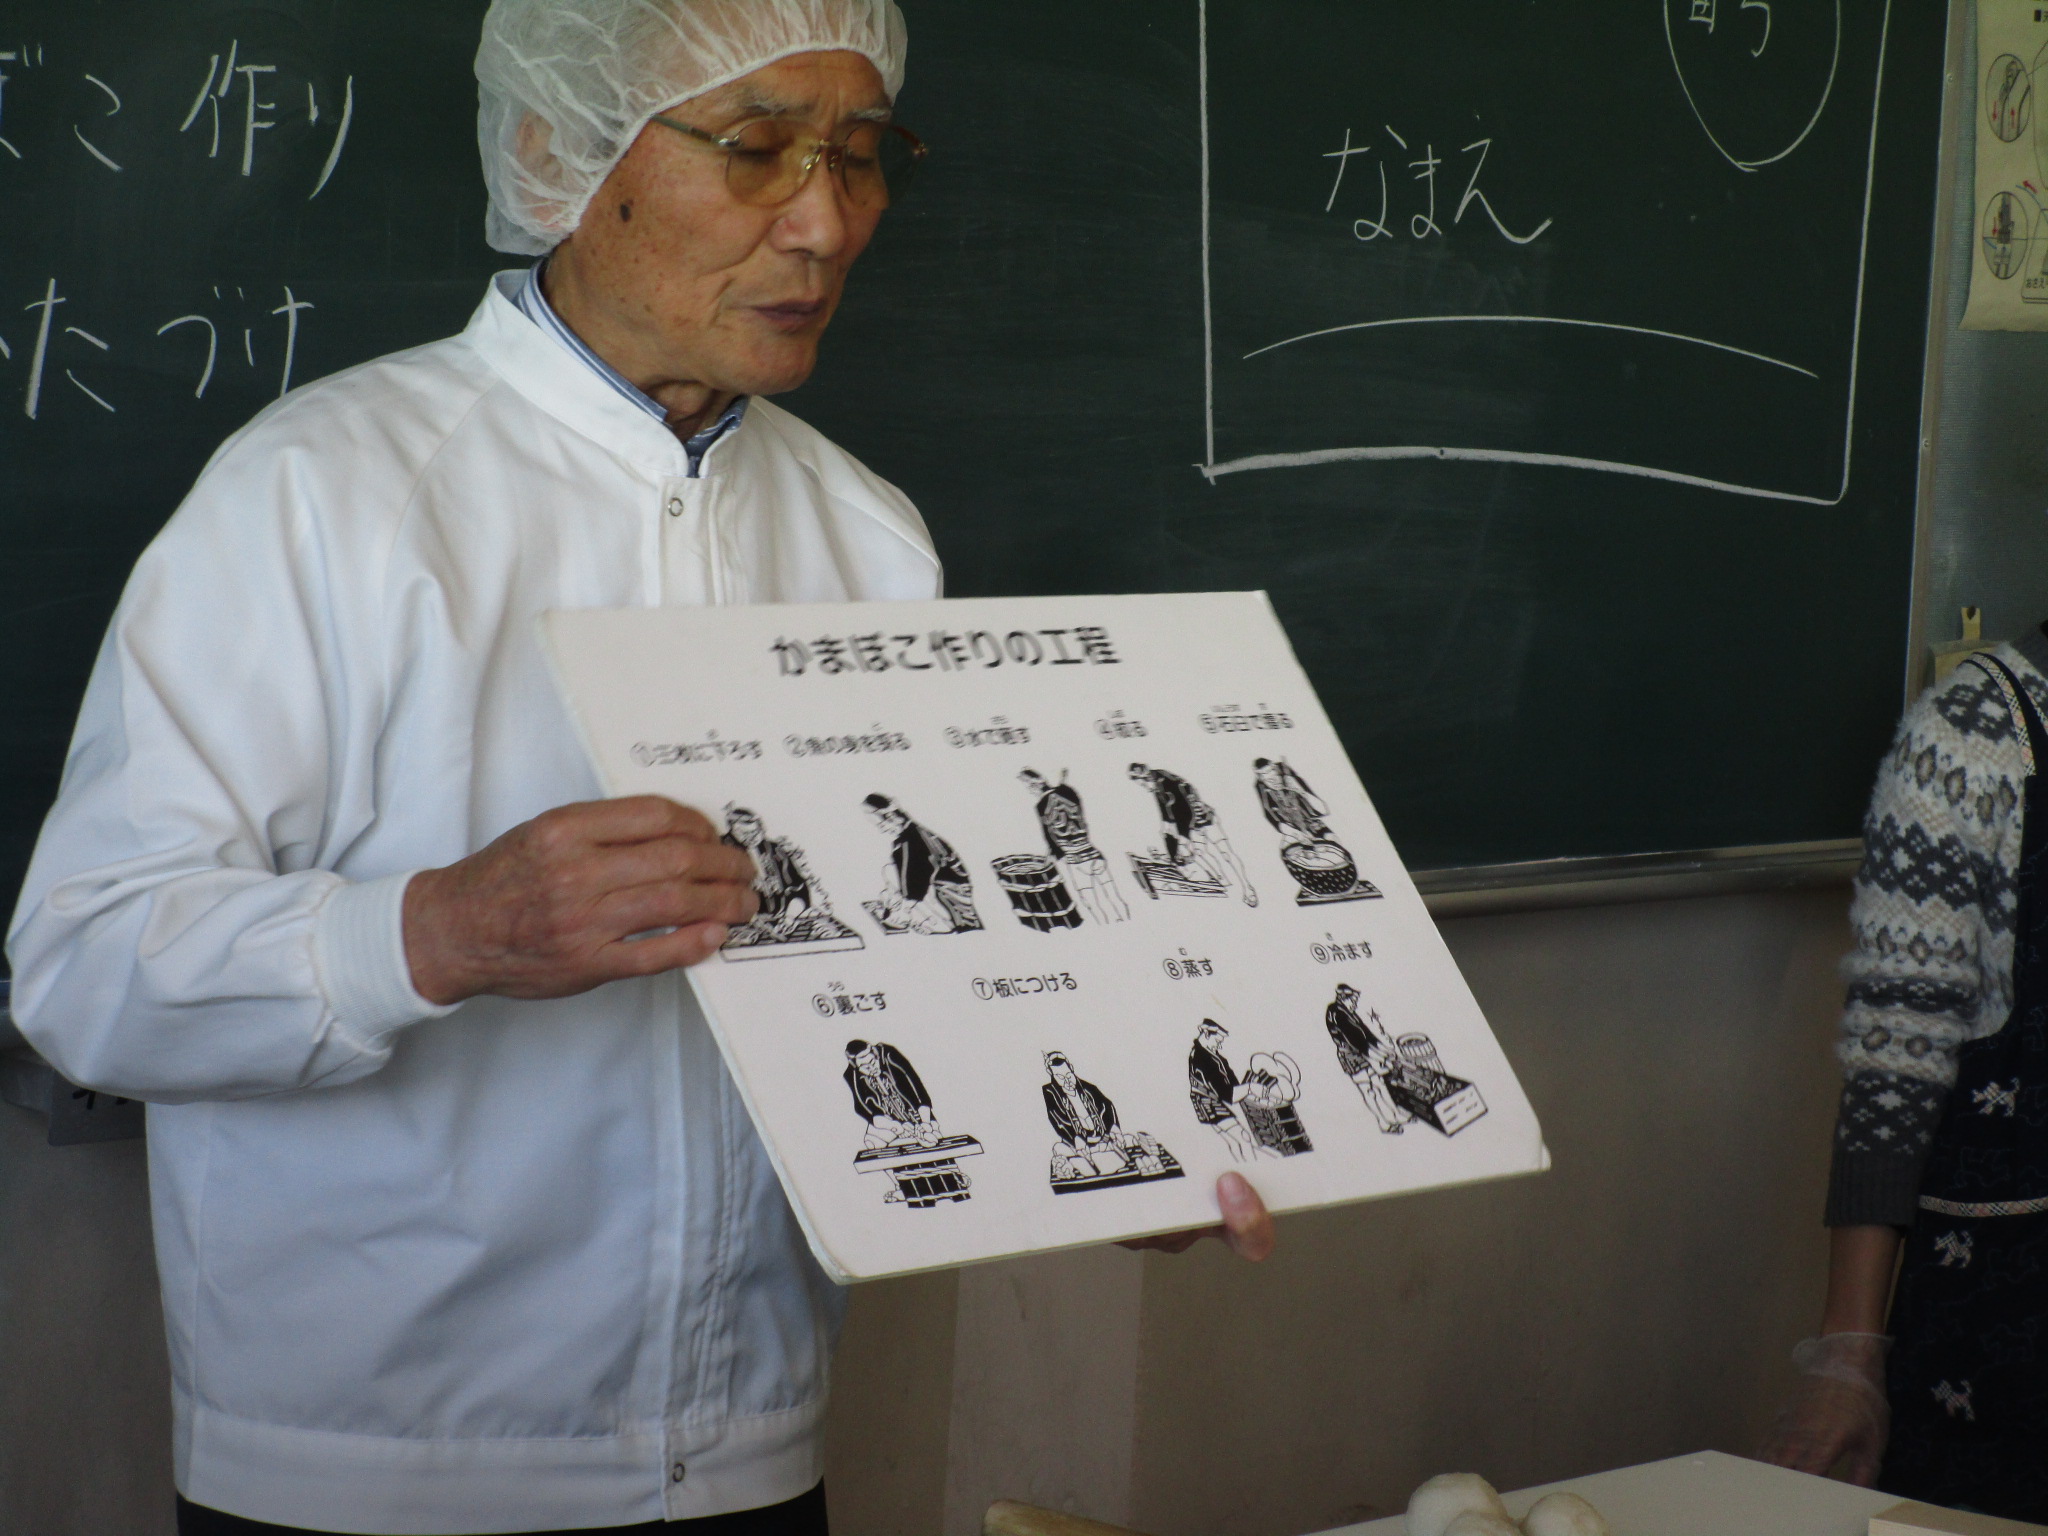 ぼこ作り
かたづけ
なまえ
かまぼこ作りの工程
①三枚に下ろす ②魚の身を採る ③水で晒す ④絞る ⑤石臼で擂る
⑥裏ごす ⑦板につける ⑧蒸す ⑨冷ます